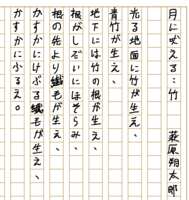 月に吠える:竹 萩原朔太郎
光る地面に竹が生え、
青竹が生え、
地下には竹の根が生え、
根がしだいにほそらみ、
根の先より繊毛が生え、
かすかにけぶる繊毛が生え、
かすかにふるえ。